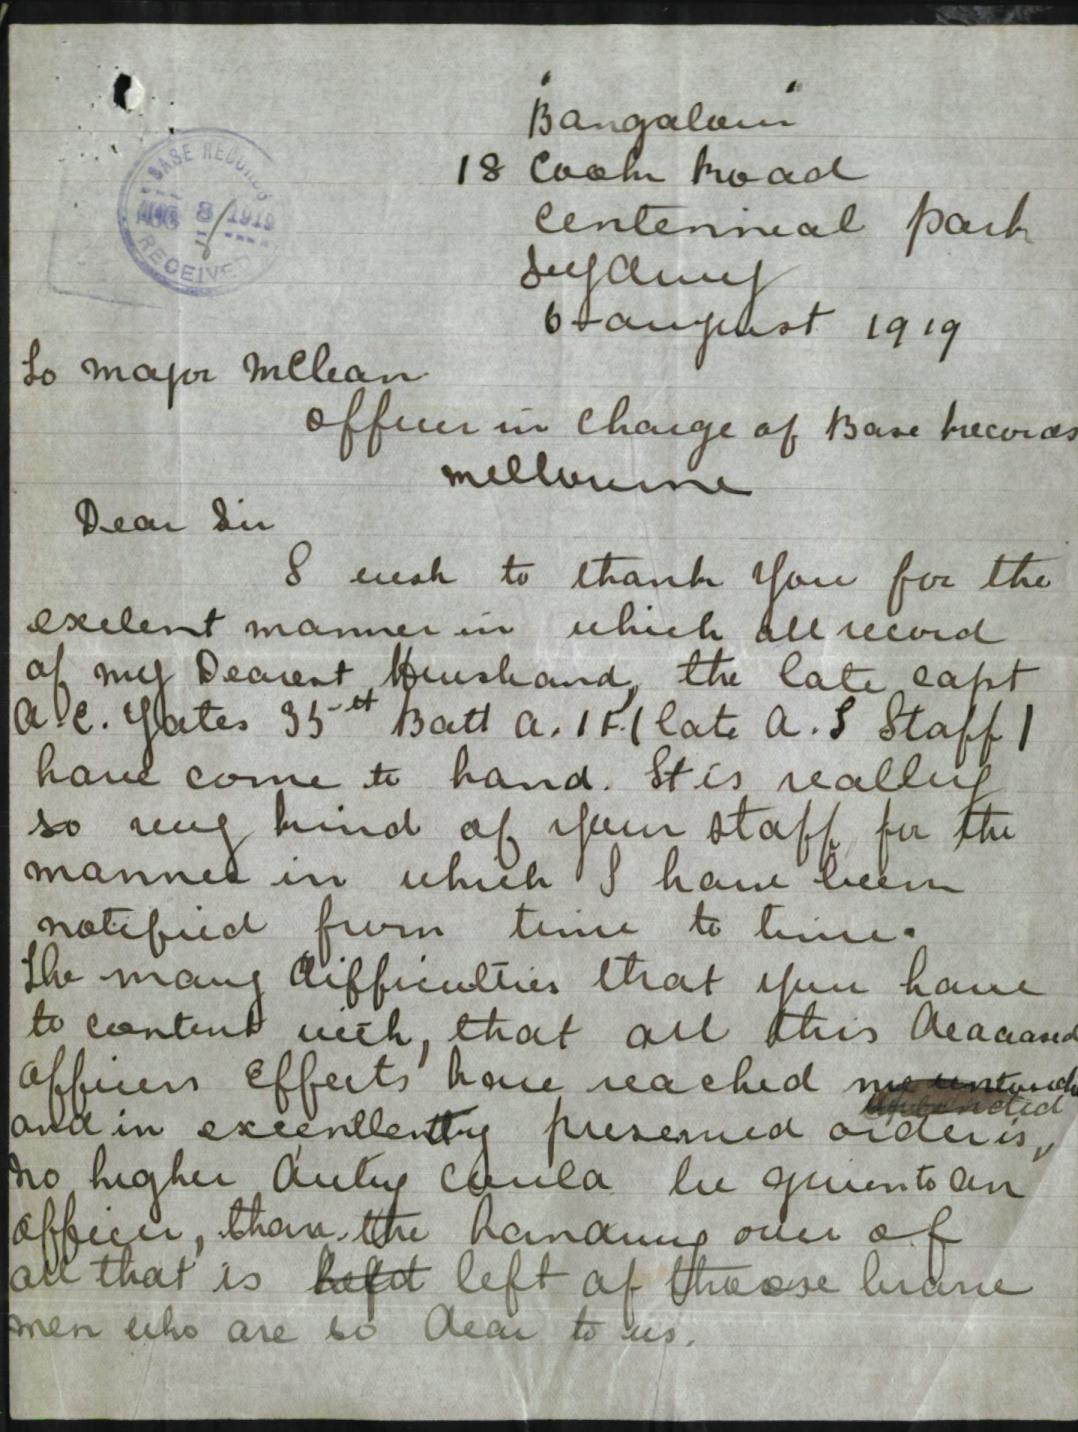 BASE RECORDS
AUG 8 1919
RECEIVED
"Bangalow"
18 Cook Road
Centennial Park
Sydney
6 August 1919
To Major McLean
Officer in Charge of Base Records
Melbourne
Dear Sir
I wish to thank you for the
exelent manner in which all record
of my Dearest Husband, the late Capt
A. C. Yates 35th Batt A. I F. (late A. I Staff)
have come to hand. It is really
so very kind of your staff for the
manner in which I have been
notified from time to time.
The many difficulties that you have
to contend with, that all this deceased
officers Effects have reached me
and in excellently preserved order is,
No higher duty could be given to an
officer, than the handing over of
all that is left of those brave
men who are so dear to us.